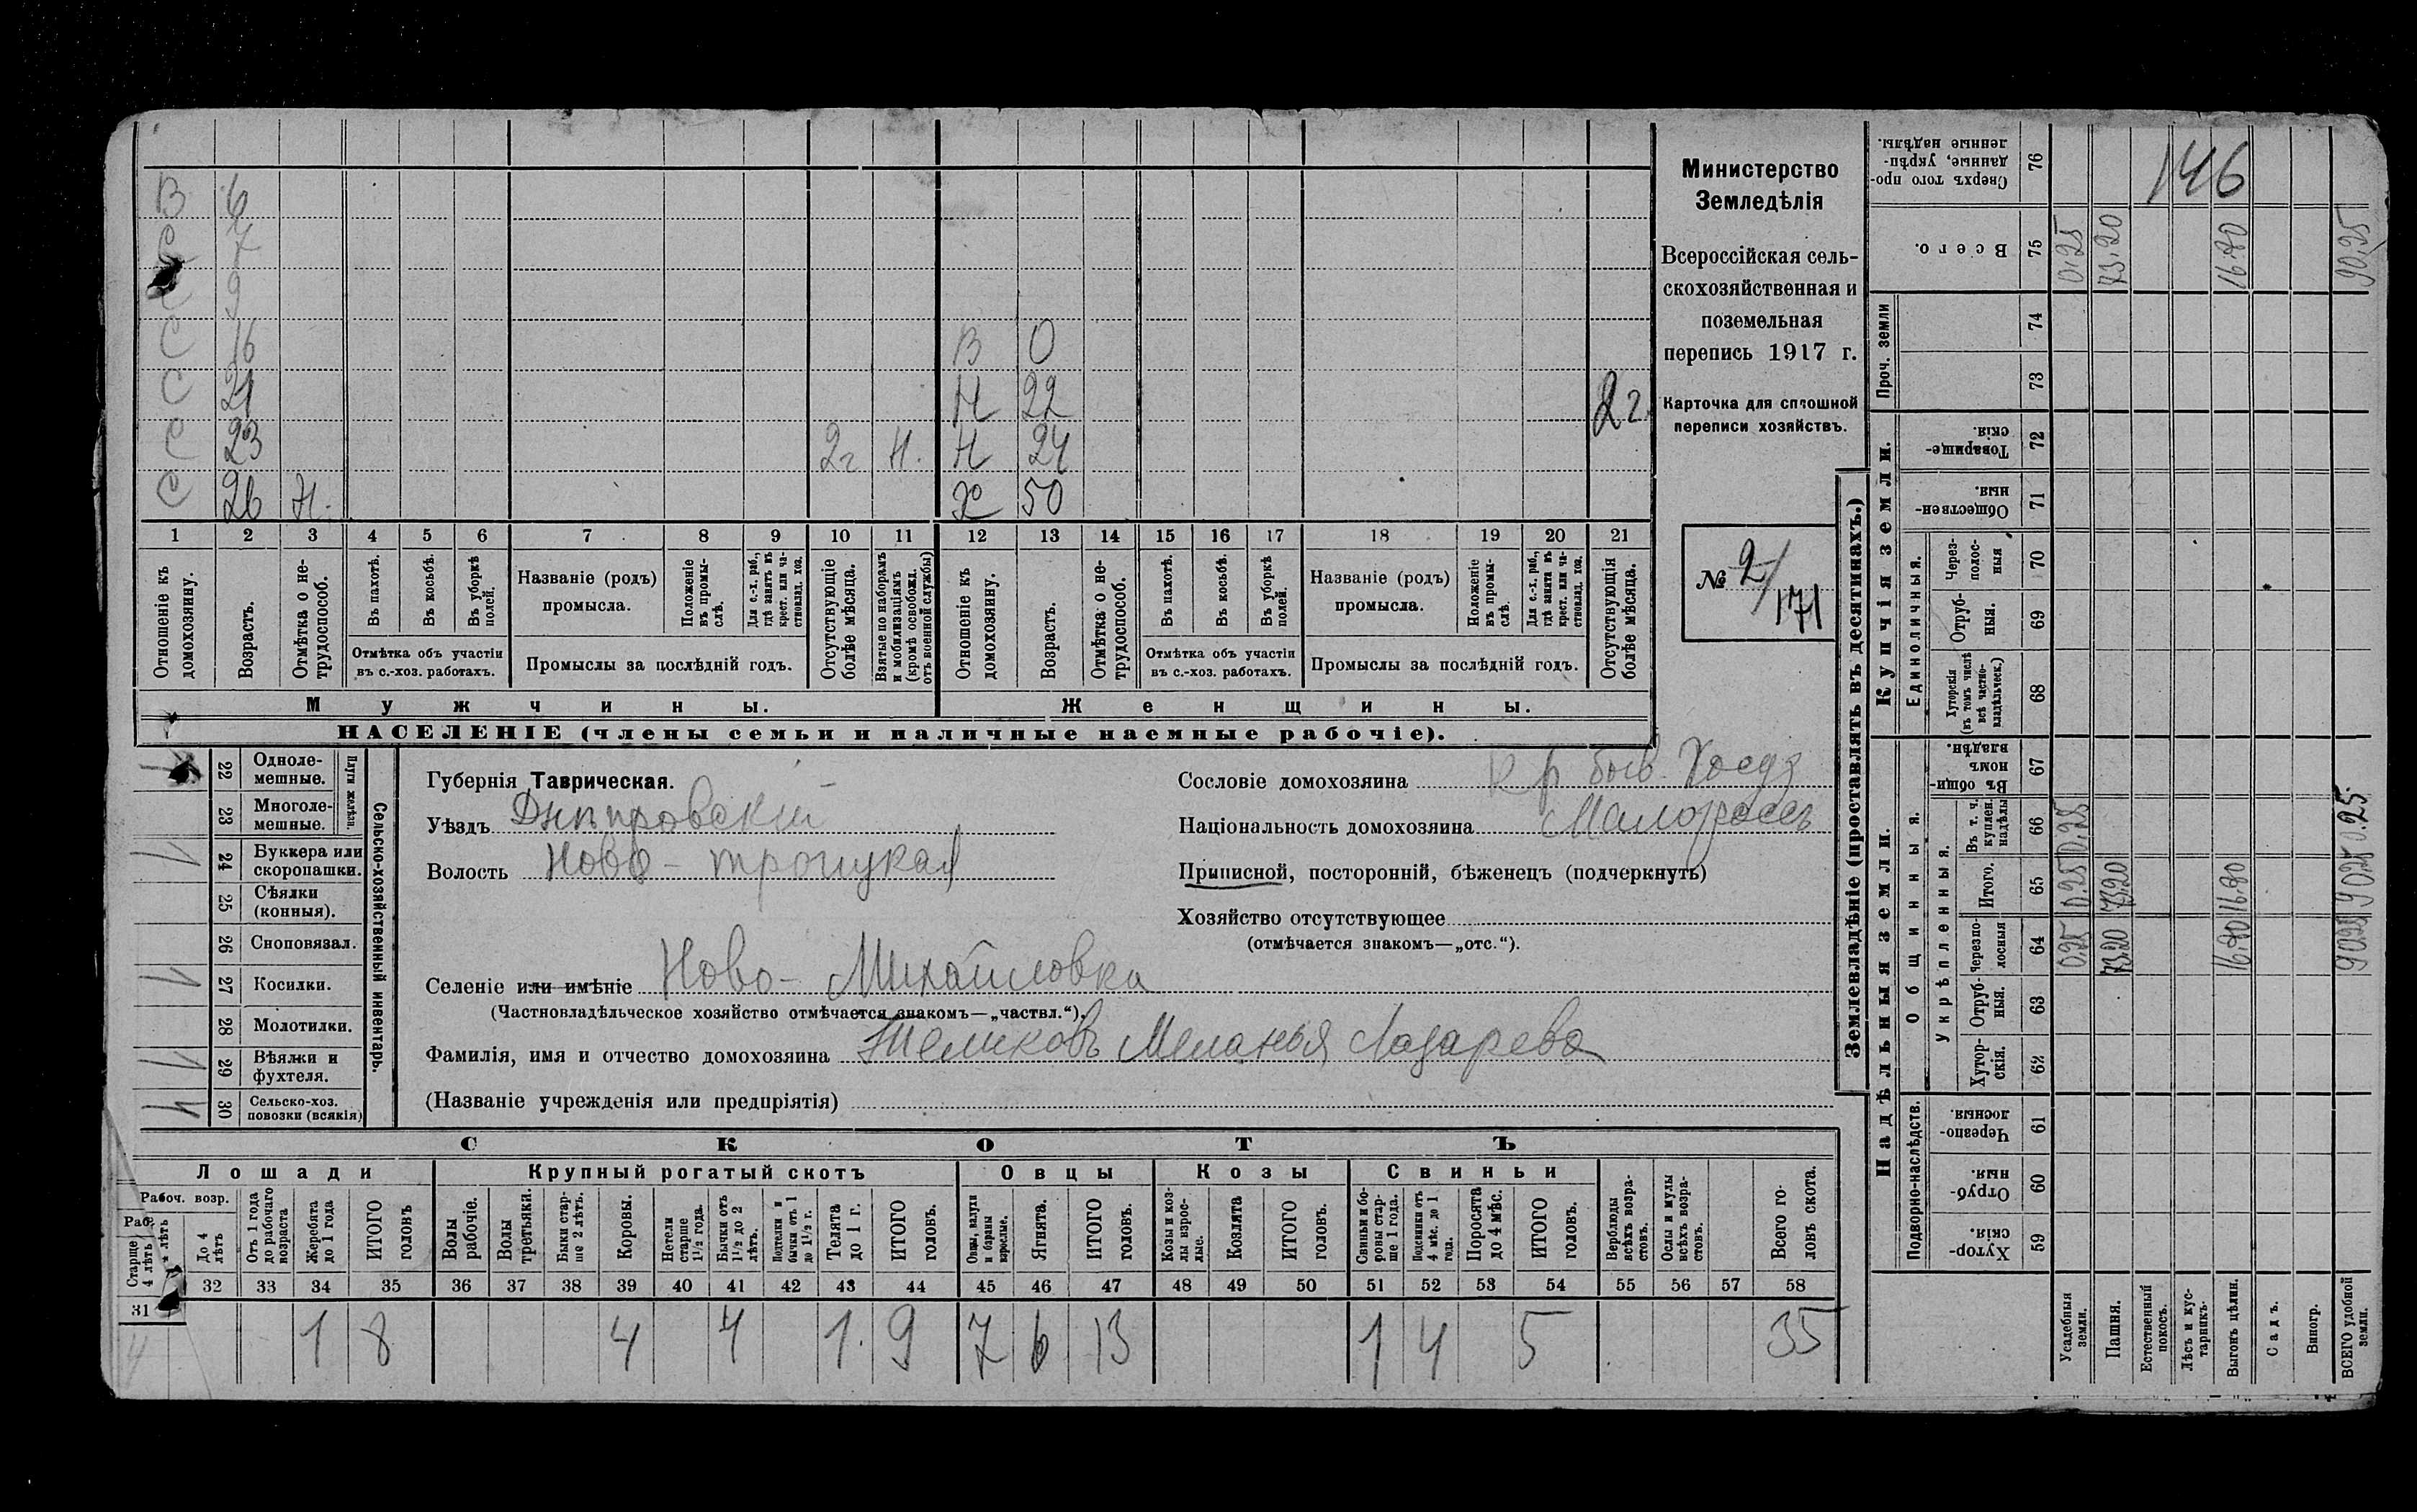 Министерство
Земледѣлія
Всероссійская сель-
скохозяйственная и
поземельная
перепись 1917 г.
Карточка для сплошной
переписи хозяйствъ.
№ 2/171
В 6
С 7
С 9
С 16 В 0
С 21 Н 22 2 г.
С 23 2 г Н. Н 24
С 26 Н. Х 50
1 2 3 4 5 6 7 8 9 10 11 12 13 14 15 16 17 18 19 20 21
Отношеніе къ домохозяину.
Возрастъ.
Отмѣтка о не-трудоспособ.
Въ пахотѣ.
Въ косьбѣ.
Въ уборкѣ полей.
Отмѣтка объ участіи
въ с.-хоз. работахъ.
Названіе (родъ)
промысла.
Положеніе въ промы-слѣ.
Для с.-х. раб., гдѣ занятъ въ крест. или ча-стновлад. хоз.
Промыслы за послѣдній годъ.
Отсутствующіе болѣе мѣсяца.
Взятые по наборамъ и мобилизаціямъ (кромѣ освобожд. отъ военной службы)
Отношеніе къ домохозяину.
Возрастъ.
Отмѣтка о не-трудоспособ.
Въ пахотѣ.
Въ косьбѣ.
Въ уборкѣ полей.
Отмѣтка объ участіи
въ с.-хоз. работахъ.
Названіе (родъ)
промысла.
Положеніе въ промы-слѣ.
Для с.-х. раб., гдѣ занята въ крест. или ча-стновлад. хоз.
Промыслы за послѣдній годъ.
Отсутствующія болѣе мѣсяца.
Мужчины. Женщины.
НАСЕЛЕНІЕ (члены семьи и наличные наемные рабочіе).
Сельско-хозяйственный инвентарь.
Плуги желѣзн.
22 Одноле-мешные.
23 Многоле-мешные.
24 Буккера или скоропашки.
25 Сѣялки (конныя).
26 Сноповязал.
27 Косилки.
28 Молотилки.
29 Вѣялки и фухтеля.
30 Сельско-хоз. повозки (всякія)
Губернія Таврическая.
Уѣздъ Днѣпровскій
Волость Ново-Троицкая
Сословіе домохозяина Кр быв.
Національность домохозяина Малороссъ
Приписной, посторонній, бѣженецъ (подчеркнуть)
Хозяйство отсутствующее
(отмѣчается знакомъ—„отс.“).
Селеніе или имѣніе Ново-Михайловка
(Частновладѣльческое хозяйство отмѣчается знакомъ—„частвл.“).
Фамилія, имя и отчество домохозяина Меланья Лазарева
(Названіе учрежденія или предпріятія)
СКОТЪ
Лошади Крупный рогатый скотъ Овцы Козы Свиньи
Рабоч. возр.
Старше 4 лѣтъ
До 4 лѣтъ
Отъ 1 года до рабочаго возраста
Жеребята до 1 года
ИТОГО головъ
Волы рабочіе.
Волы третьяки.
Быки стар-ше 2 лѣтъ.
Коровы.
Нетели старше 1½ года.
Бычки отъ 1½ до 2 лѣтъ.
Подтелки и бычки отъ 1 до 1½ г.
Телята до 1 г.
ИТОГО головъ.
Овцы, валухи и бараны взрослые.
Ягнята.
ИТОГО головъ.
Козы и коз-лы взрос-лые.
Козлята
ИТОГО головъ.
Свиньи и бо-ровы стар-ше 1 года.
Подсвинки отъ 4 мѣс. до 1 года.
Поросята до 4 мѣс.
ИТОГО головъ.
Верблюды всѣхъ возра-стовъ.
Ослы и мулы всѣхъ возра-стовъ.
Всего го-ловъ скота.
31 32 33 34 35 36 37 38 39 40 41 42 43 44 45 46 47 48 49 50 51 52 53 54 55 56 57 58
4 1 8 4 4 1 9 7 6 13 1 4 5 35
Землевладѣніе (проставлять въ десятинахъ.)
Надѣльныя земли. Купчія земли. Проч. земли
Подворно-наслѣдств.
Общинныя.
Укрѣпленныя.
Единоличныя.
59 Хутор-скія.
60 Отруб-ныя.
61 Черезпо-лосныя.
62 Хутор-скія.
63 Отруб-ныя.
64 Черезпо-лосныя
65 Итого.
66 Въ т. ч. куплен. надѣлы
67 Въ общин-номъ владѣн.
68 Хуторскія (въ томъ числѣ всѣ частно-владѣльческ.)
69 Отруб-ныя.
70 Через-полос-ныя
71 Обществен-ныя.
72 Товарище-скія.
73
74
75 Всего.
76 Сверхъ того про-данные, укрѣп-ленные надѣлы.
146
Усадебныя земли. 0.25 0.25 0.25 0.25
Пашня. 73.20 73.20 73.20
Естественный покосъ.
Лѣсъ и кус-тарникъ.
Выгонъ цѣлин. 16.80 16.80 16.80
Садъ.
Виногр.
ВСЕГО удобной земли. 90.25 90.25 0.25 90.25